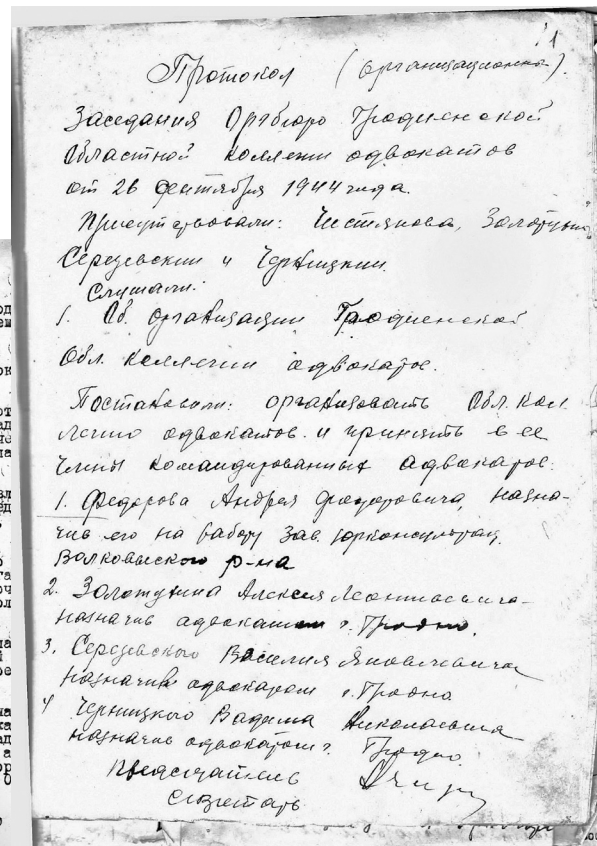 1
Протокол (организационный).
Заседания Оргбюро Гродненской
Областной коллегии адвокатов
от 26 сентября 1944 года.
Присутствовали: Чистякова, Золотухин
Серезевский и Черницкий.
Слушали:
1. Об организации Гродненской
Обл. коллегии адвокатов.
Постановили: организовать Обл. кол
легию адвокатов и принять в ее
члены командированных адвокатов:
1. Федорова Андрея Федоровича, назна-
чив его на работу Зав. юрконсультац.
Волковысского р-на
2. Золотухина Алексея Леонтьевича-
назначив адвокатом г. Гродно.
3. Серезевского Василия Яковлевича
назначив адвокатом г. Гродно
4 Черницкого Вадима Николаевича
назначив адвокатом г. Гродно.
Председатель
Секретарь